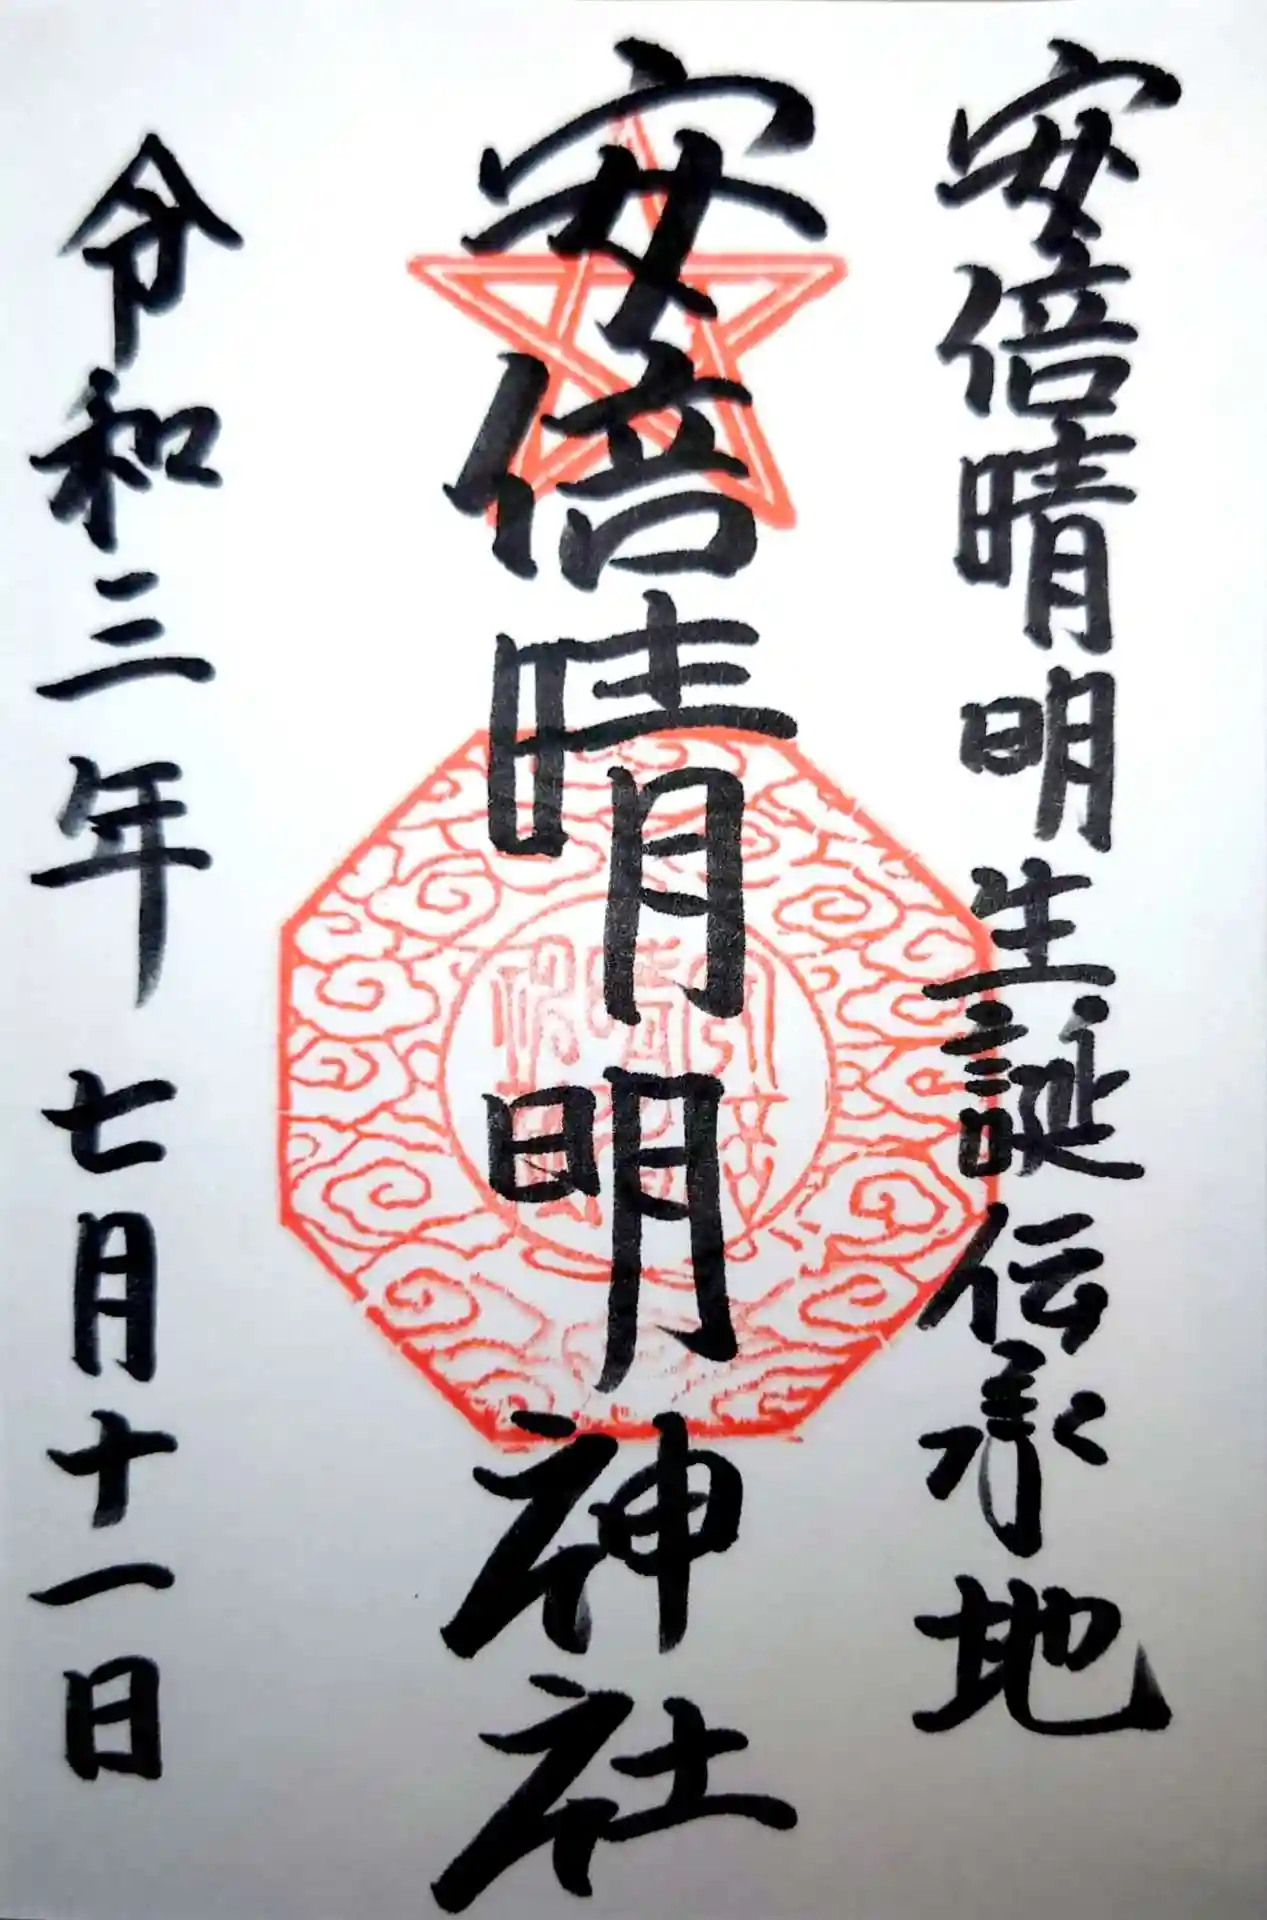 安倍晴明生誕伝承地
安倍晴明神社
令和三年 七月十一日